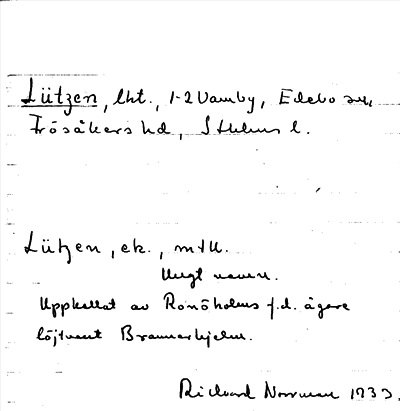 Lützen, lht., 1-2 Vamby, Edebo sn,
Frösåkers hd, Sthlms l.
Lützen, ek., mtU.
Ungt namn.
Uppkallat av Ronöholms f.d. ägare
löjtnant Brannerhjelm.
Rickard Norrman 1933.